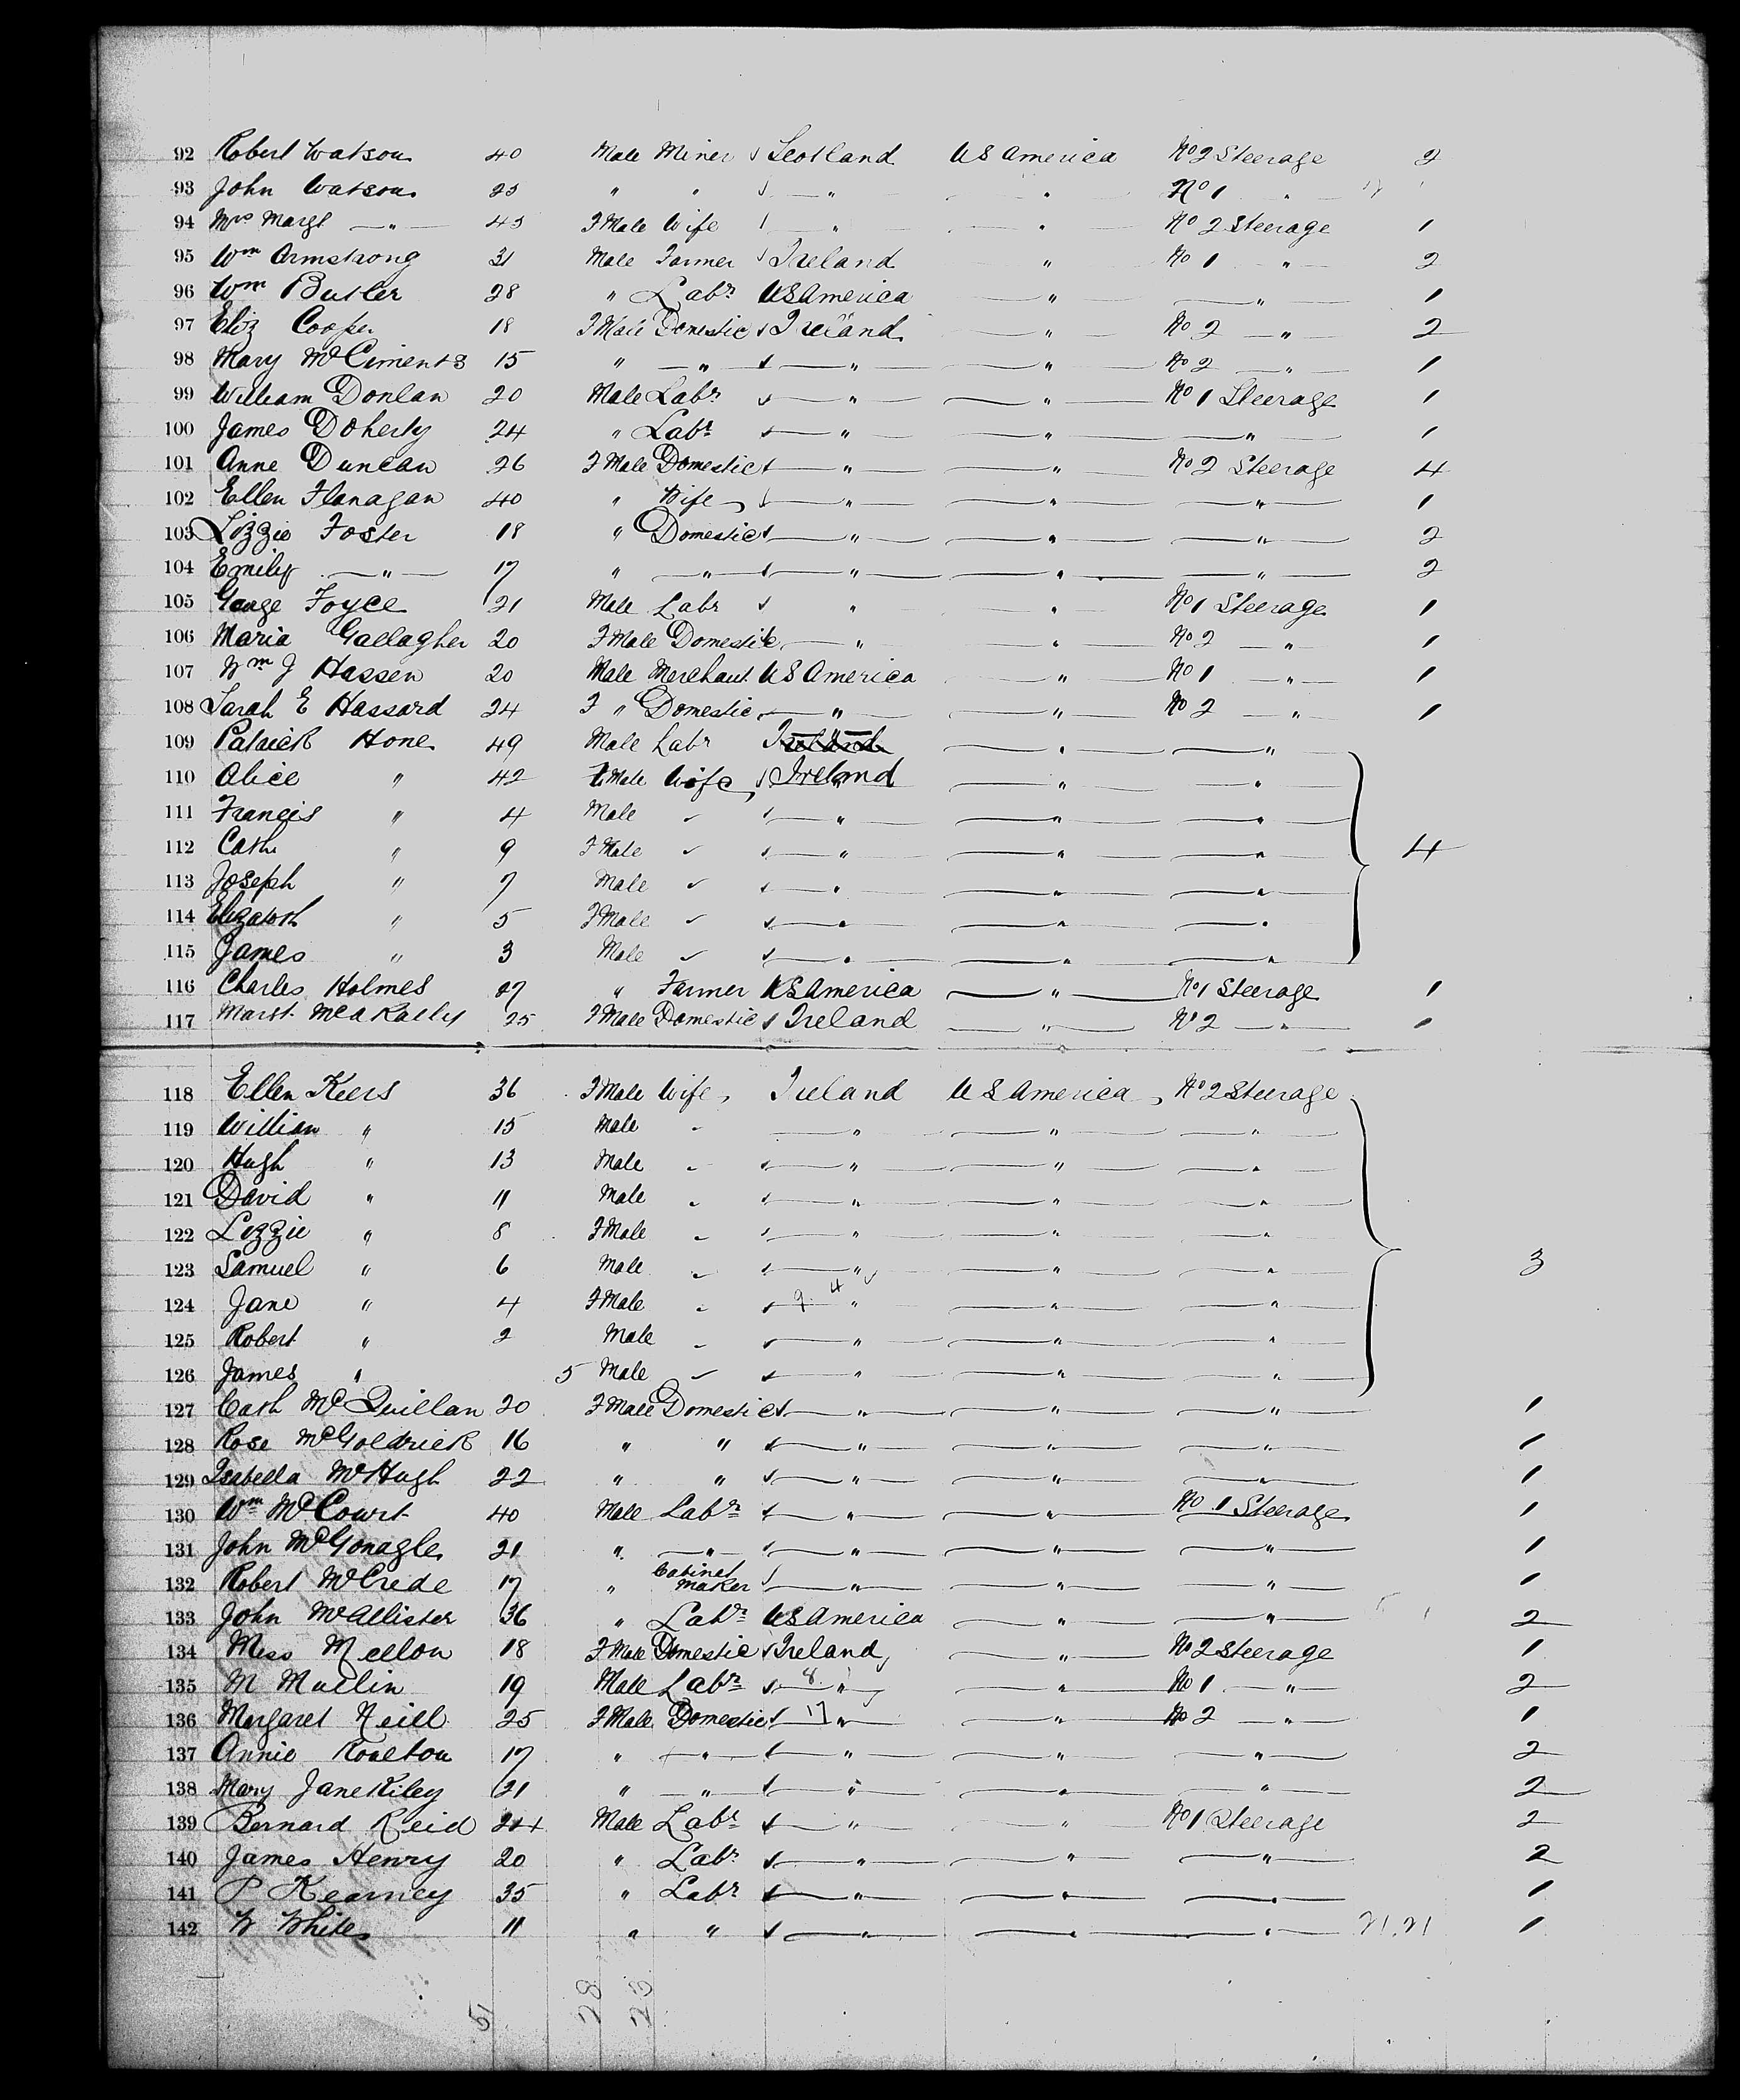 92 Robert Watson 40 Male Miner Scotland US America No 2 Steerage 2
93 John Watson 23 " " " " No 1 "
94 Mrs Margt " 43 FMale Wife " " No 2 Steerage 1
95 Wm Armstrong 31 Male Farmer Ireland " No 1 " 2
96 Wm Butler 28 " Labr US America " " 1
97 Eliz Cooper 18 FMale Domestic Ireland " No 2 " 2
98 Mary 15 " " " " No 2 " 1
99 William Donlan 20 Male Labr " " No 1 Steerage 1
100 James Doherty 24 " Labr " " " 1
101 Anne Duncan 26 FMale Domestic " " No 2 Steerage 4
102 Ellen Flanagan 40 " Wife " " " 1
103 Lizzie Foster 18 " Domestic " " " 2
104 Emily " 17 " " " " " 2
105 George Foyce 21 Male Labr " " No 1 Steerage 1
106 Maria Gallagher 20 FMale Domestic " " No 2 " 1
107 Wm J Hassen 20 Male Merchant US America " No 1 " 1
108 Sarah E Hassard 24 F " Domestic " " No 2 " 1
109 Patrick Hone 49 Male Labr Ireland " "
110 Alice " 42 FMale Wife Ireland " "
111 Francis " 4 Male " " "
112 Cath " 9 FMale " " " 4
113 Joseph " 7 Male " " "
114 Elizabth " 5 FMale " " "
115 James " 3 Male " " "
116 Charles Holmes 27 " Farmer US America " No 1 Steerage 1
117 Margt 25 FMale Domestic Ireland " No 2 " 1
118 Ellen Keers 36 FMale Wife Ireland US America No 2 Steerage
119 William " 15 Male " " "
120 Hugh " 13 Male " " "
121 David " 11 Male " " "
122 Lizzie " 8 FMale " " "
123 Samuel " 6 Male " " " 3
124 Jane " 4 FMale " " "
125 Robert " 2 Male " " "
126 James " 5 Male " " "
127 Cath McQuillan 20 FMale Domestic " " " 1
128 Rose McGoldrick 16 " " " " " 1
129 Isabella McHugh 22 " " " " " 1
130 Wm McCourt 40 Male Labr " " No 1 Steerage 1
131 John McGonagle 21 " " " " " 1
132 Robert McCrede 17 " Cabinet Maker " " " 1
133 John McAllister 36 " Labr US America " " 2
134 Miss Mellon 18 FMale Domestic Ireland " No 2 Steerage 1
135 M Mullin 19 Male Labr 8 " " No 1 " 2
136 Margaret Neill 25 FMale Domestic 17 " " No 2 " 1
137 Annie Roulton 17 " " " " " 2
138 Mary Jane Riley 21 " " " " " 2
139 Bernard Reid 24 Male Labr " " No 1 Steerage 2
140 James Henry 20 " Labr " " " 2
141 P Kearney 35 " Labr " " " 1
142 W White 11 " " " " " 21.21 1
51 28 23